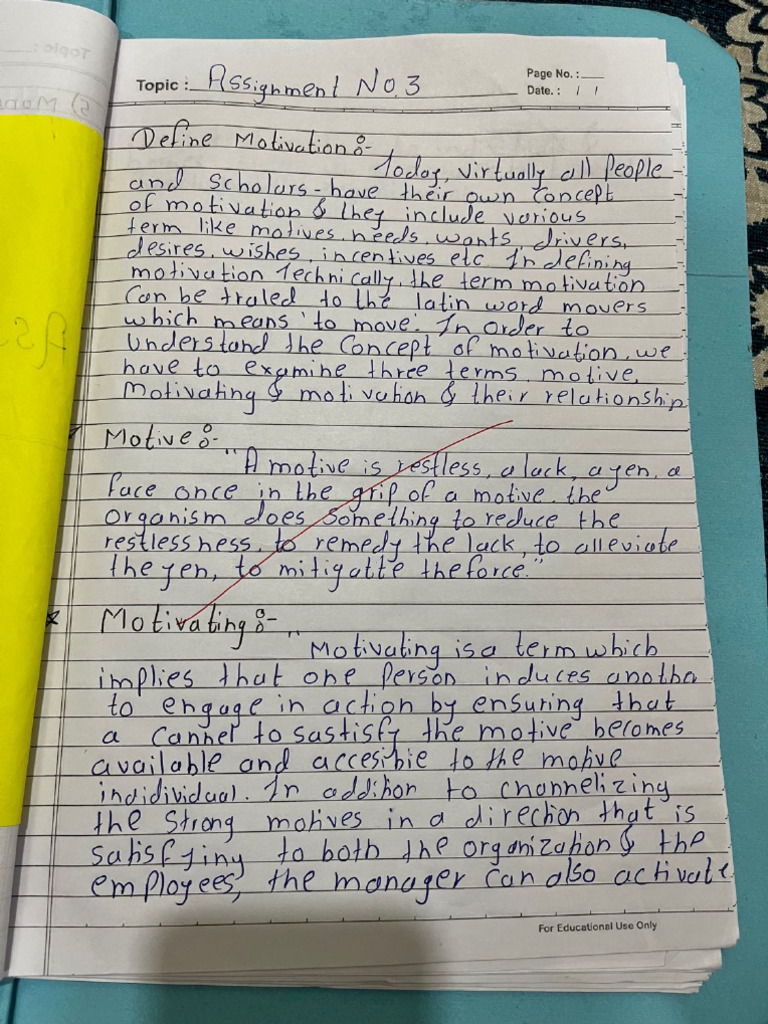 Topic : Assignment No. 3
Page No. :
Date. : / /
Define Motivation :-
Today, virtually all People
and Scholars - have their own Concept
of motivation & they include various
term like motives, needs, wants, drivers,
desires, wishes, incentives etc. In defining
motivation Technically, the term motivation
Can be traled to the latin word movers
which means 'to move'. In order to
Understand the Concept of motivation, we
have to examine three terms, motive,
Motivating & motivation & their relationship
Motive :-
"A motive is restless, a lack, a yen, a
face once in the grip of a motive. the
Organism does Something to reduce the
restlessness, to remedy the lack, to alleviate
the yen, to mitigatte the force."
Motivating :-
"Motivating is a term which
implies that one Person induces anotha
to engage in action by ensuring that
a Cannel to sastisfy the motive becomes
available and accesibie to the motive
indidividual. In addition to channelizing
the Strong motives in a direction that is
satisfying to both the organization & the
employees, the manager Can also activate
For Educational Use Only